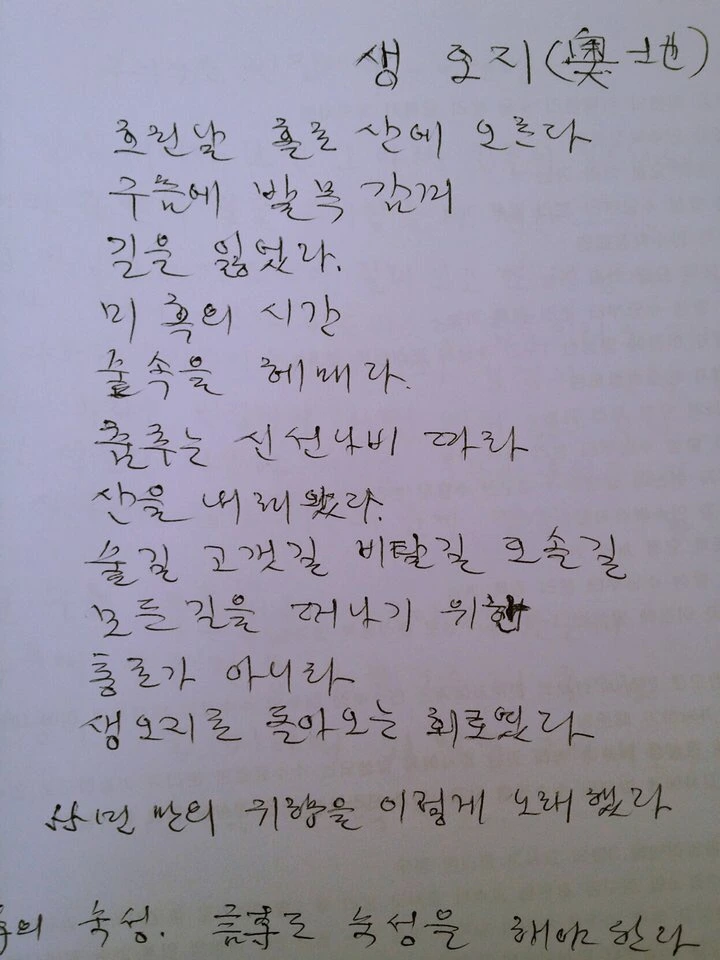 생 오지(奧地)
흐린날 홀로 산에 오르다
구름에 발목 감겨
길을 잃었다.
미혹의 시간
숲속을 헤매다.
춤추는 신선나비 따라
산을 내려왔다.
숲길 고갯길 비탈길 오솔길
모든길을 떠나기 위한
통로가 아니라
생오지로 돌아오는 회로였다
만의 귀향을 이렇게 노래했다
숙성. 글도 숙성을 해야한다